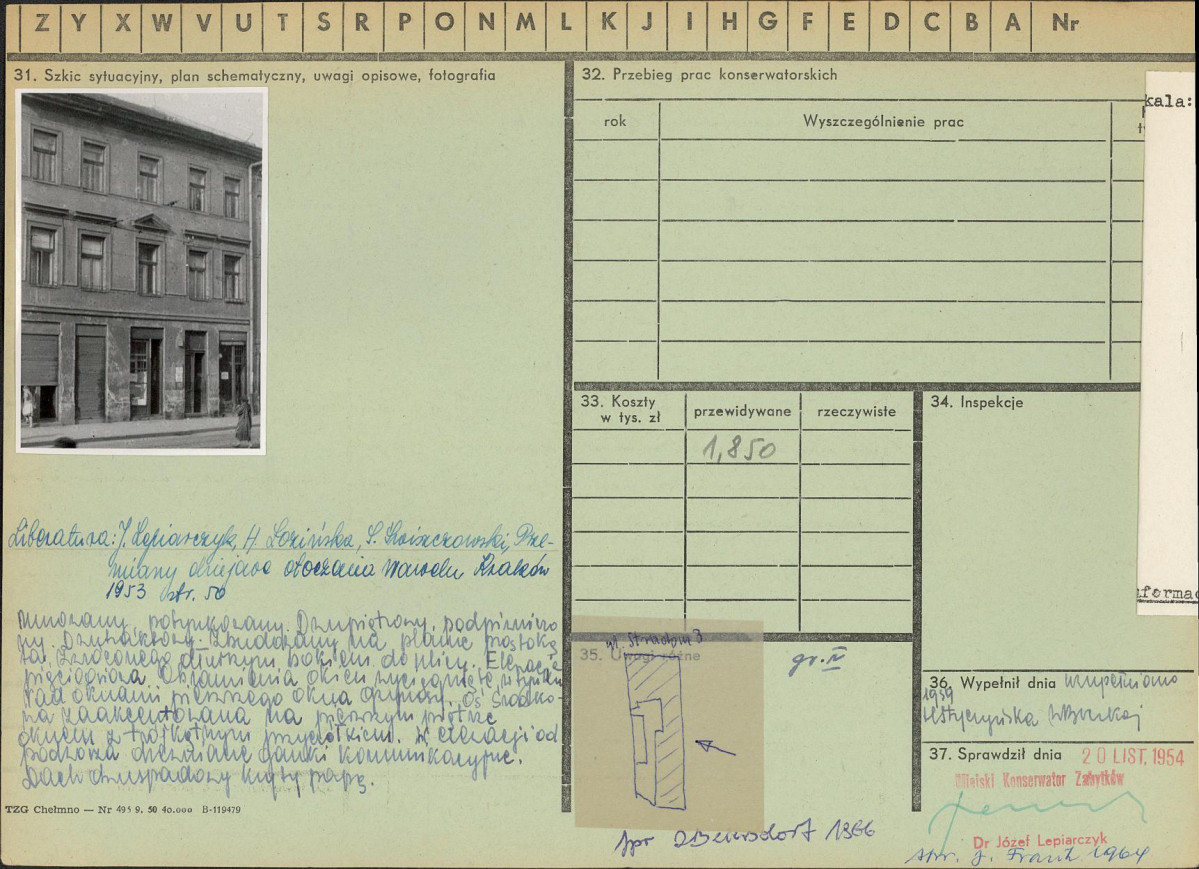 Z Y X W V U T S R P O N M L K J I H G F E D C B A Nr
31. Szkic sytuacyjny, plan schematyczny, uwagi opisowe, fotografia
Literatura: J. Lepiarczyk, H Łozińska, S. Świszczowski, Prze-
miany dziejowe otoczenia Wawelu Kraków
1953 str. 50
Murowany, potynkowany. Dwupiętrowy, podpiwniczo
ny. Dwutraktowy. Zbudowany na planie prostoką
ta, zwróconego dłuższym bokiem do ulicy. Elewacja
pięcioosiowa. Obramienia okien wyciągnięte w tynku
nad oknami pierwszego okna gzymsy. Oś środko-
wa zaakcentowana na pierwszym piętrze
oknem z trójkątnym przyczółkiem. W elewacji od
podwórza drewniane ganki komunikacyjne.
Dach dwuspadowy kryty papą.
TZG Chełmno — Nr 495 9. 50 40.000 B-119479
32. Przebieg prac konserwatorskich
rok Wyszczególnienie prac
kala:
33. Koszty
w tys. zł
przewidywane
rzeczywiste
1,850
34. Inspekcje
formac
ul. Stradom 3
35. Uwagi różne
gr. IV
36. Wypełnił dnia uzupełniono
1959
37. Sprawdził dnia 20 LIST. 1954
Miejski Konserwator Zabytków
Dr Józef Lepiarczyk
spr. J. Frank 1964
spr 1966